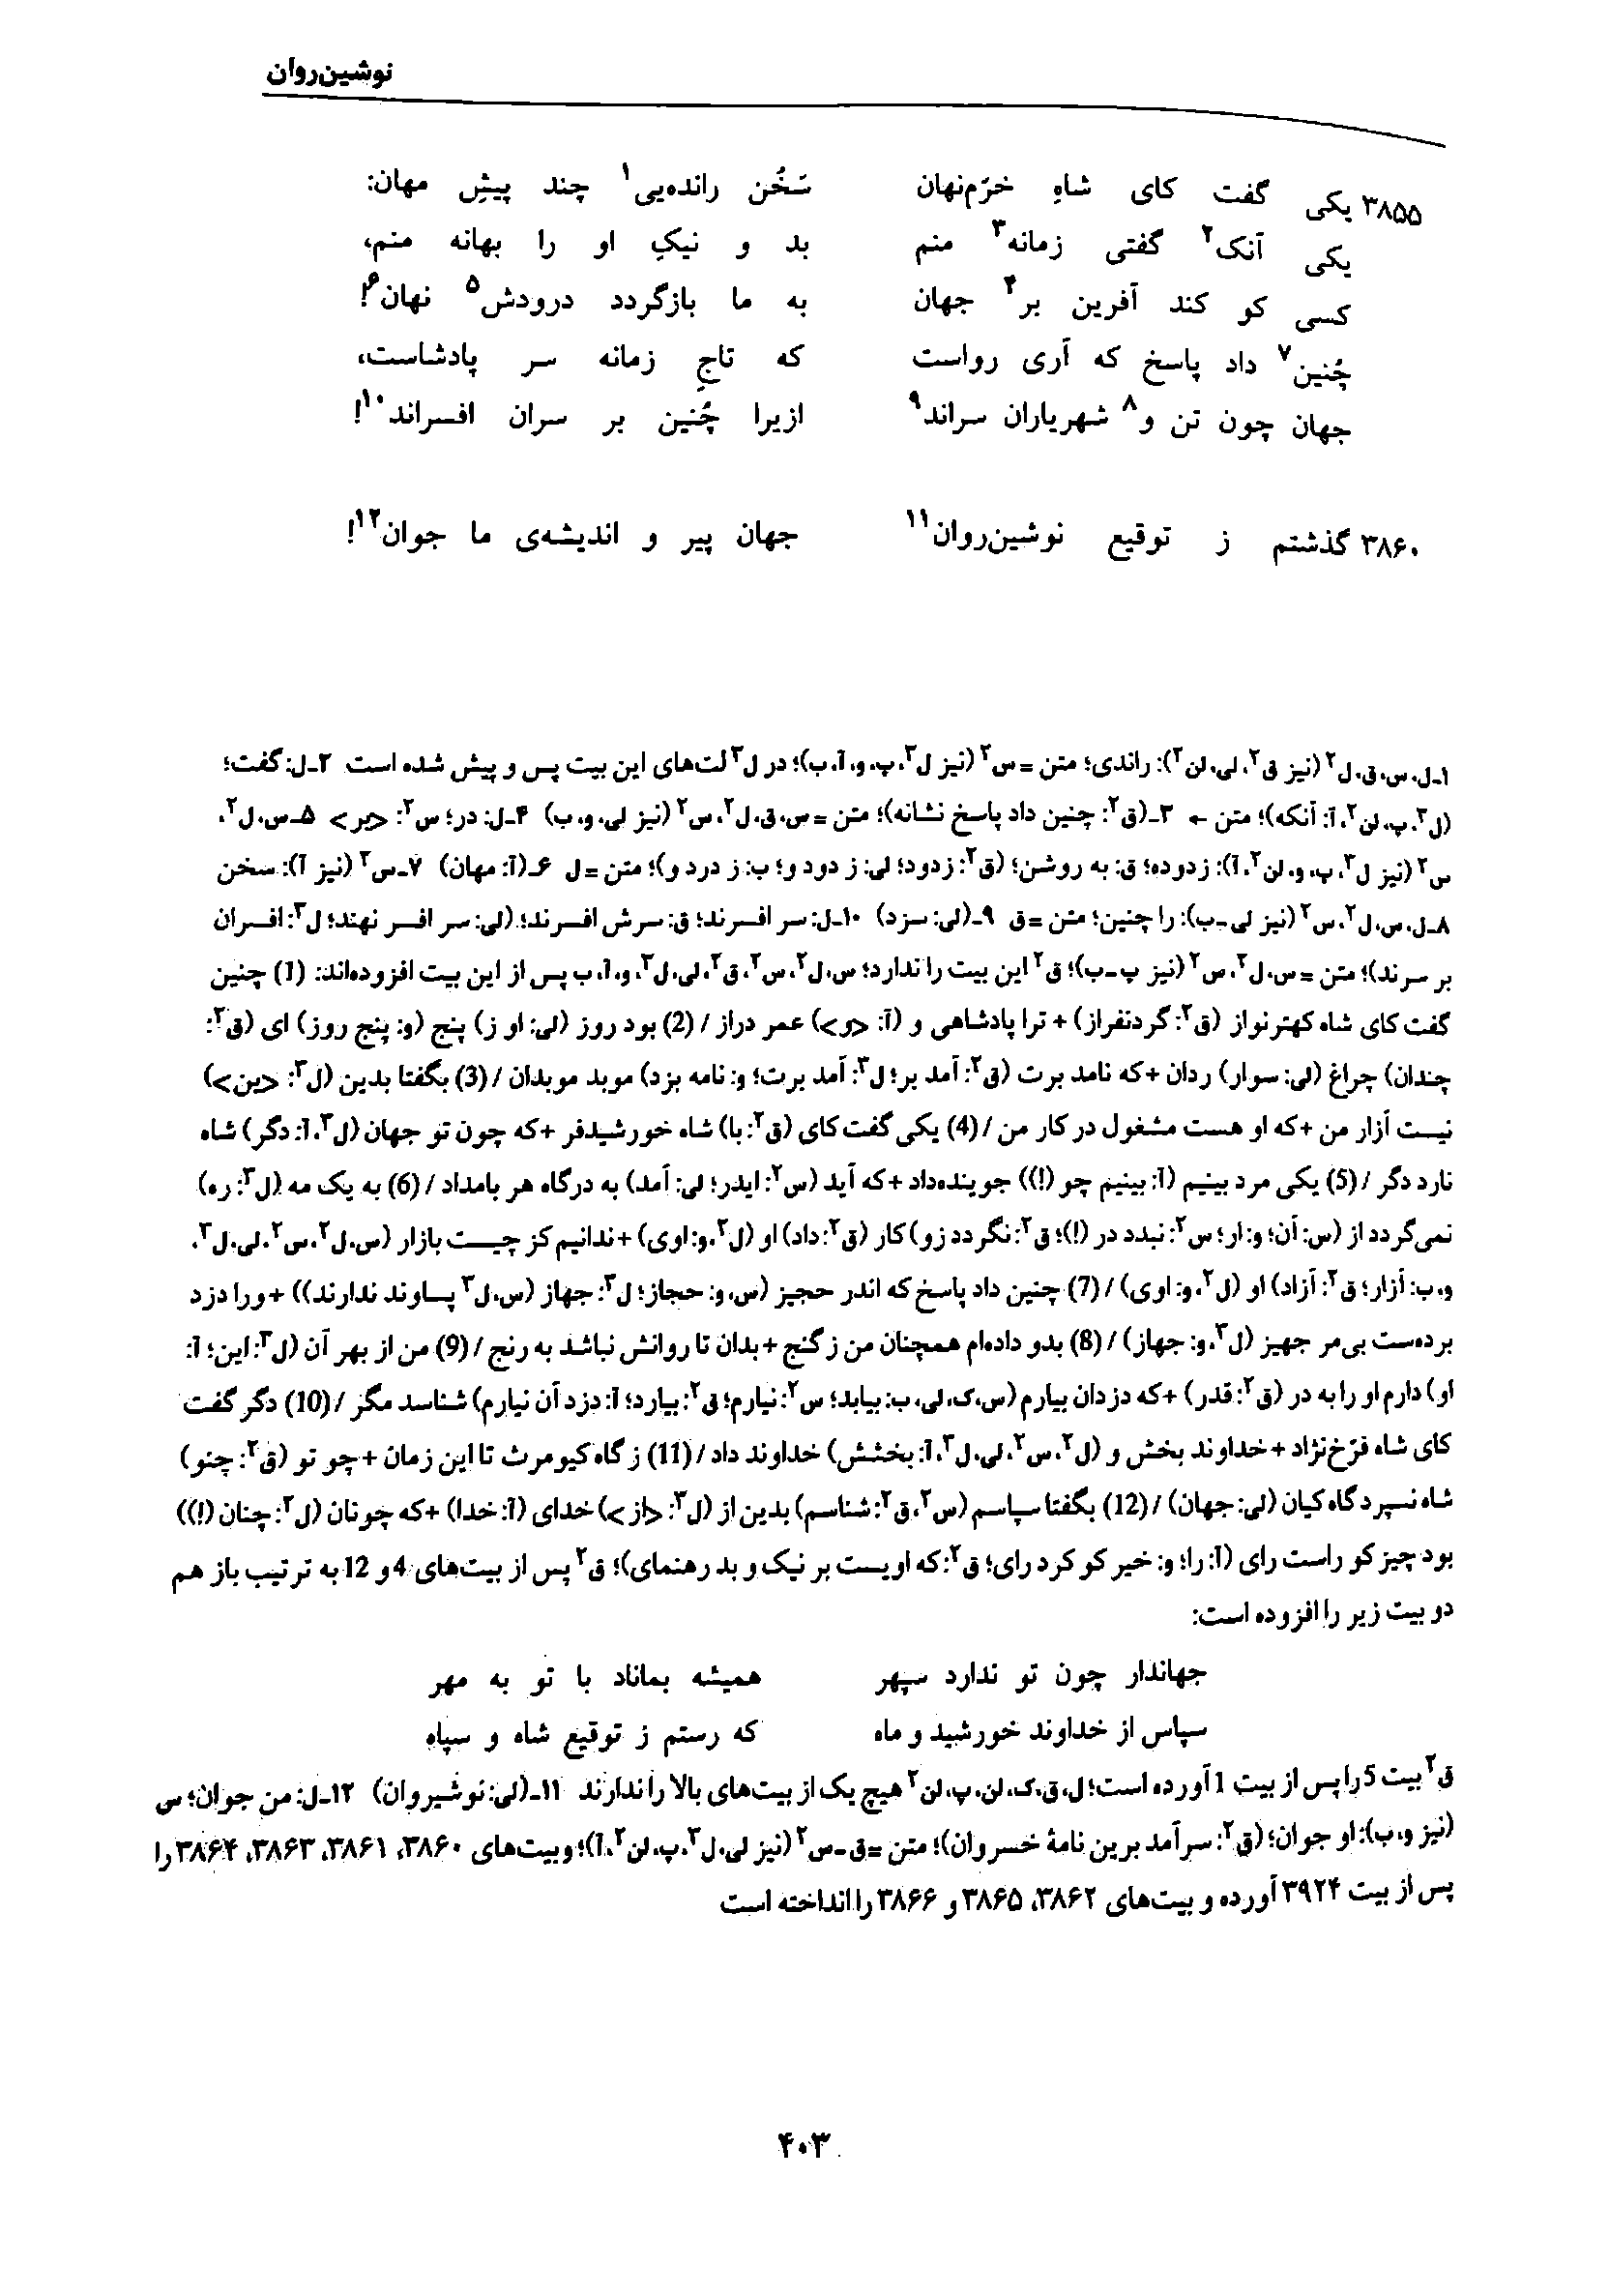 نوشین‌روان
۳۸۵۵ یکی گفت کای شاهِ خرّم‌نهان سَخُن رانده‌یی۱ چند پیشِ مهان:
یکی آنک۲ گفتی زمانه۳ منم بد و نیکِ او را بهانه منم،
کسی کو کند آفرین بر۴ جهان به ما بازگردد درودش۵ نهان۶!
چُنین۷ داد پاسخ که آری رواست که تاجِ زمانه سر پادشاست،
جهان چون تن و۸ شهریاران سراند۹ ازیرا چُنین بر سران افسراند۱۰!
۳۸۶۰ گذشتم ز توقیع نوشین‌روان۱۱ جهان پیر و اندیشه‌ی ما جوان۱۲!
۱ـ ل، س، ق، ل۲ (نیز ق۲، لی، لن۲): راندی؛ متن = س۲ (نیز ل۳، پ، و، آ، ب)؛ در ل۳ لت‌های این بیت پس و پیش شده است ۲ـ ل: گفت؛
(ل۳، پ، لن۲، آ: آنکه)؛ متن ← ۳ـ (ق۲: چنین داد پاسخ نشانه)؛ متن = س، ق، ل۲، س۲ (نیز لی، و، ب) ۴ـ ل: در؛ س۲: <بر> ۵ـ س، ل۲،
س۲ (نیز ل۳، پ، و، لن۲، آ): زدوده؛ ق: به روشن؛ (ق۲: زدود؛ لی: ز دود و؛ ب: ز درد و)؛ متن = ل ۶ـ (آ: مهان) ۷ـ س۲ (نیز آ): سخن
۸ـ ل، س، ل۲، س۲ (نیز لی ـ ب): را چنین؛ متن = ق ۹ـ (لی: سزد) ۱۰ـ ل: سر افسرند؛ ق: سرش افسرند؛ (لی: سر افسر نهند؛ ل۳: افسران
بر سرند)؛ متن = س، ل۲، س۲ (نیز پ ـ ب)؛ ق۲ این بیت را ندارد؛ س، ل۲، س۲، ق۲، لی، ل۳، و، آ، ب پس از این بیت افزوده‌اند: (1) چنین
گفت کای شاه کهترنواز (ق۲: گردنفراز) + ترا پادشاهی و (آ: <و>) عمر دراز / (2) بود روز (لی: او ز) پنج (و: پنج روز) ای (ق۲:
چندان) چراغ (لی: سوار) ردان + که نامد برت (ق۲: آمد بر؛ ل۳: آمد برت؛ و: نامه بزد) موبد موبدان / (3) بگفتا بدین (ل۳: <دین>)
نیست آزار من + که او هست مشغول در کار من / (4) یکی گفت کای (ق۲: با) شاه خورشیدفر + که چون تو جهان (ل۳، آ: دگر) شاه
نارد دگر / (5) یکی مرد بینیم (آ: بینیم چو (!)) جوینده‌داد + که آید (س۲: ایدر؛ لی: آمد) به درگاه هر بامداد / (6) به یک مه (ل۳: ره)
نمی‌گردد از (س: آن؛ و: ار؛ س۲: نبدد در (!)؛ ق۲: نگردد زو) کار (ق۲: داد) او (ل۲، و: اوی) + ندانیم کز چیست بازار (س، ل۲، س۲، لی، ل۳،
و، ب: آزار؛ ق۲: آزاد) او (ل۲، و: اوی) / (7) چنین داد پاسخ که اندر حجیز (س، و: حجاز؛ ل۳: جهاز (س، ل۳ پساوند ندارند)) + ورا دزد
برده‌ست بی‌مر جهیز (ل۳، و: جهاز) / (8) بدو داده‌ام همچنان من ز گنج + بدان تا روانش نباشد به رنج / (9) من از بهر آن (ل۳: این؛ آ:
او) دارم او را به در (ق۲: قدر) + که دزدان بیارم (س، ک، لی، ب: بیابد؛ س۲: نیارم؛ ق۲: بیارد؛ آ: دزد آن نیارم) شناسد مگر / (10) دگر گفت
کای شاه فرّخ‌نژاد + خداوند بخش و (ل۲، س۲، لی، ل۳، آ: بخشش) خداوند داد / (11) ز گاه کیومرث تا این زمان + چو تو (ق۲: چنو)
شاه نسپرد گاه کیان (لی: جهان) / (12) بگفتا سپاسم (س۲، ق۲: شناسم) بدین از (ل۳: <از>) خدای (آ: خدا) + که چونان (ل۲: چنان (!))
بود چیز کو راست رای (آ: را؛ و: خیر کو کرد رای؛ ق۲: که اویست بر نیک و بد رهنمای)؛ ق۲ پس از بیت‌های 4 و 12 به ترتیب باز هم
دو بیت زیر را افزوده است:
جهاندار چون تو ندارد سپهر همیشه بماناد با تو به مهر
سپاس از خداوند خورشید و ماه که رستم ز توقیع شاه و سپاه
ق۲ بیت 5 را پس از بیت 1 آورده است؛ ل، ق، ک، لن، پ، لن۲ هیچ یک از بیت‌های بالا را ندارند ۱۱ـ (لی: نوشیروان) ۱۲ـ ل: من جوان؛ س
(نیز و، ب): او جوان؛ (ق۲: سرآمد برین نامهٔ خسروان)؛ متن = ق ـ س۲ (نیز لی، ل۳، پ، لن۲، آ)؛ و بیت‌های ۳۸۶۰، ۳۸۶۱، ۳۸۶۳، ۳۸۶۴ را
پس از بیت ۳۹۲۴ آورده و بیت‌های ۳۸۶۲، ۳۸۶۵ و ۳۸۶۶ را انداخته است
۴۰۳